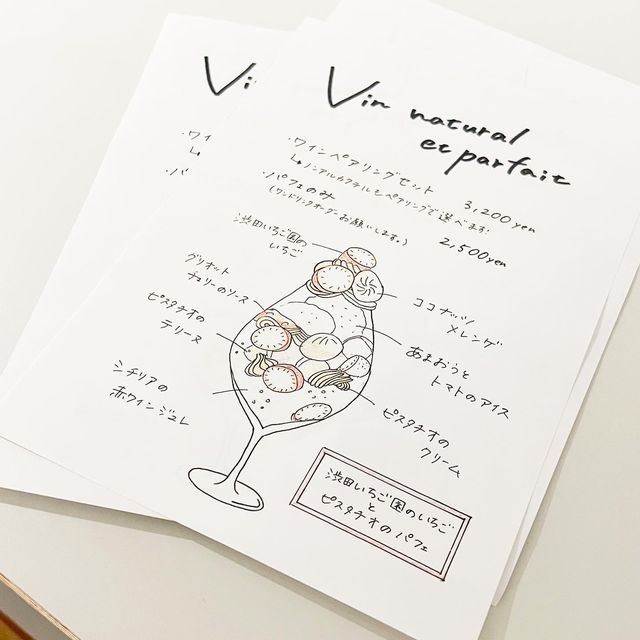 Vin natural
et parfait
・ワインペアリングセット 3,200yen
↳ノンアルカクテルとペアリングで選べます
・パフェのみ 2,500yen
(ワンドリンクオーダーお願いします。)
渋田いちご園の
いちご
グリオット
チェリーのソース
ピスタチオの
テリーヌ
シチリアの
赤ワインジュレ
ココナッツ
メレンゲ
あまおうと
トマトのアイス
ピスタチオの
クリーム
渋田いちご園のいちご
と
ピスタチオのパフェ
Vi
・ワイ
↳
・パ